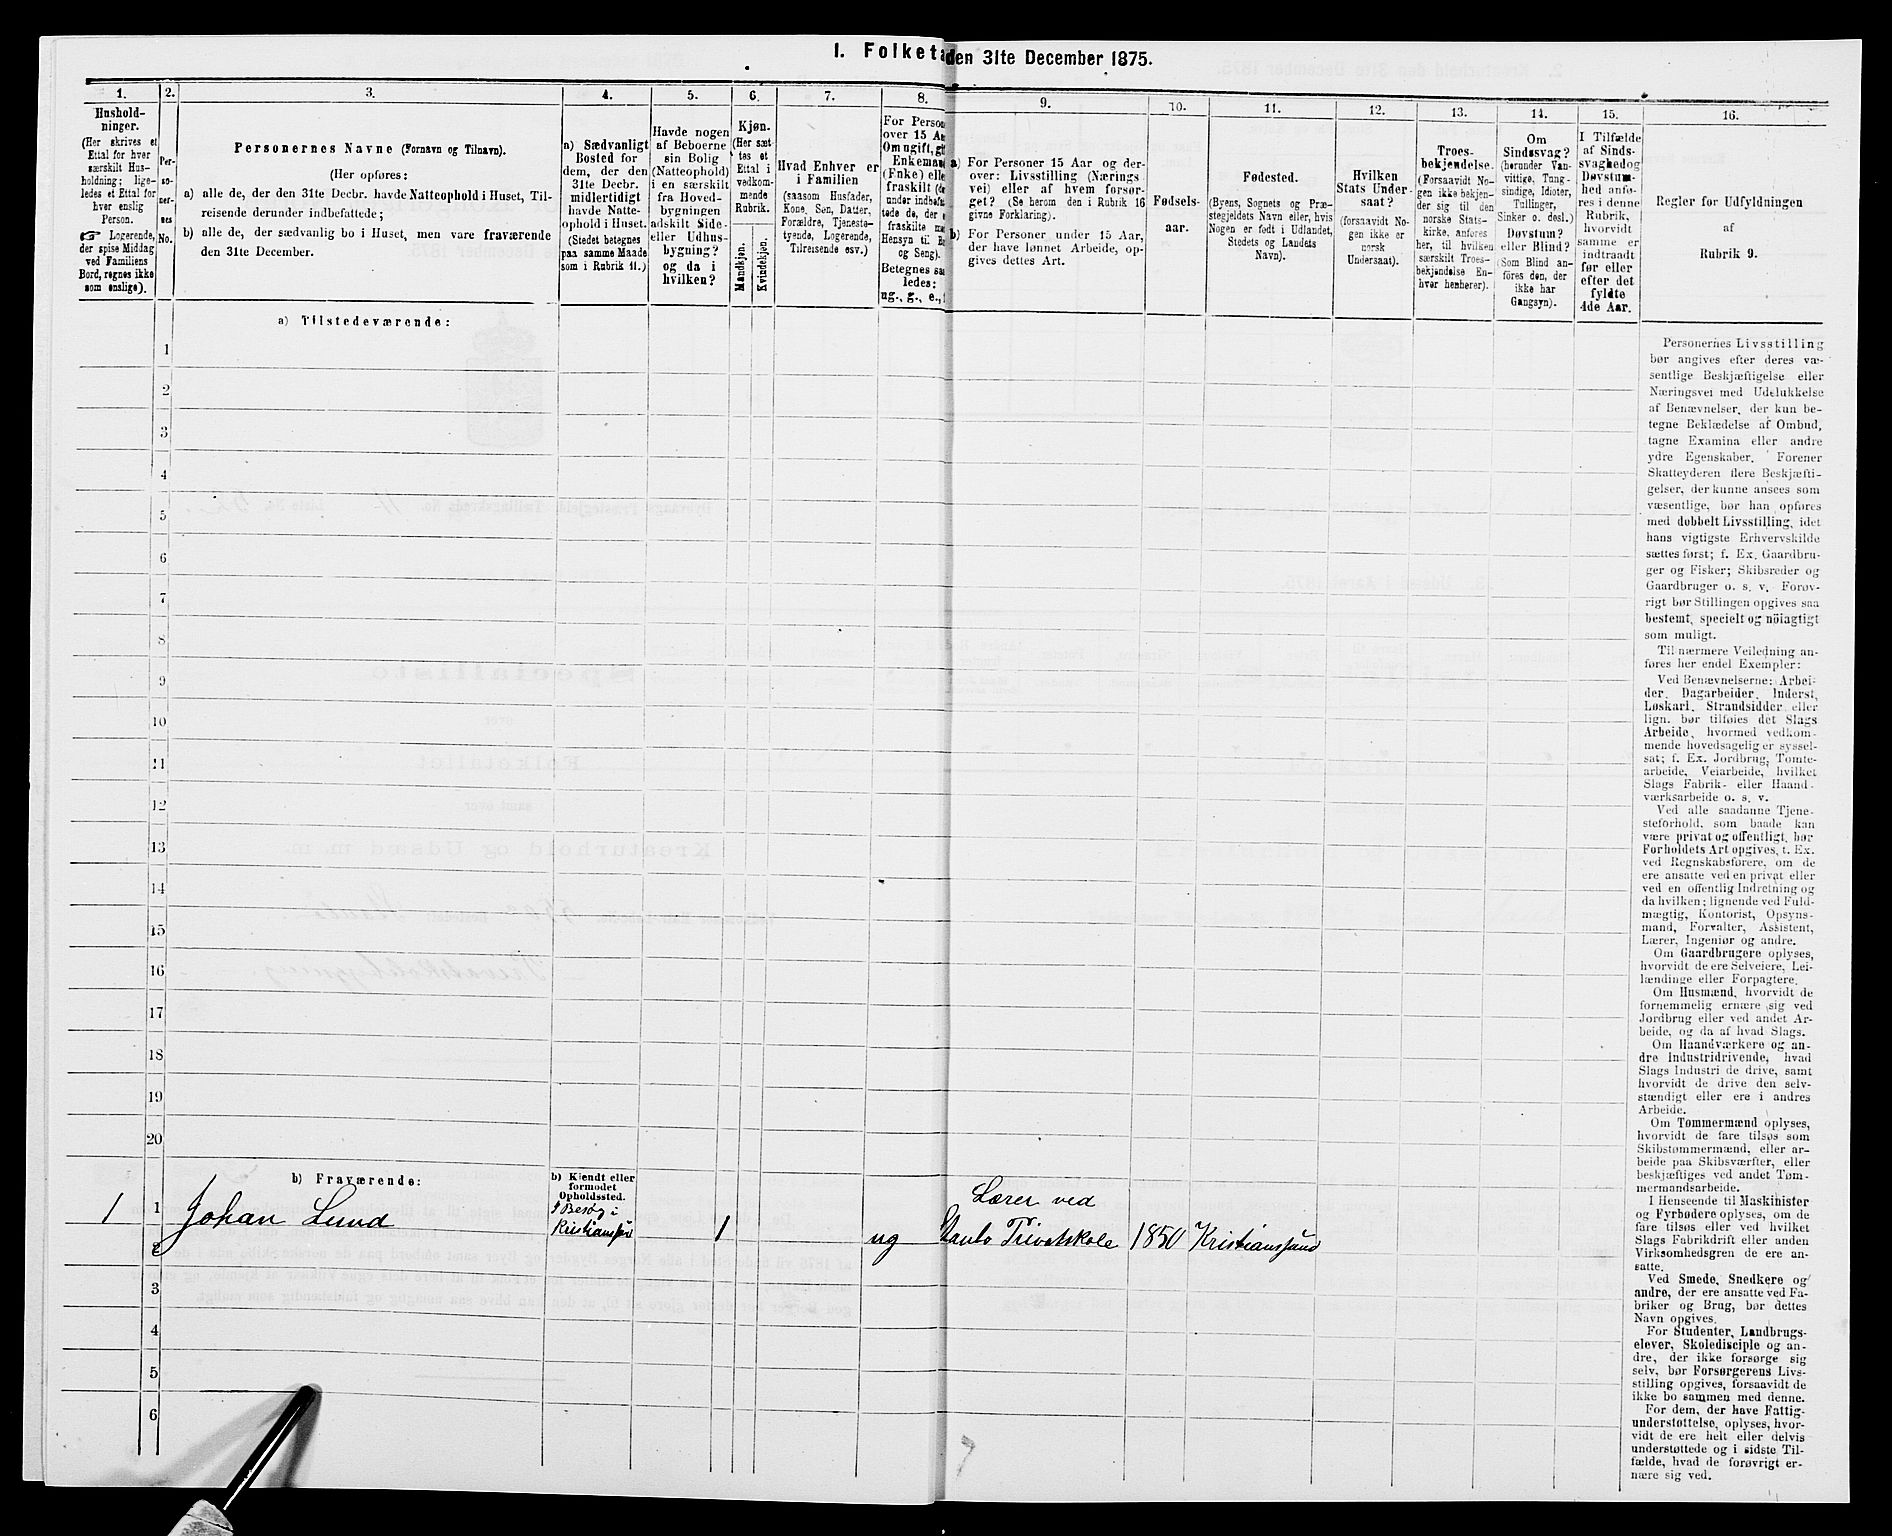 I. Folketa
den 31te December 1875.
1.
Hushold-
ninger.
(Her skrives et
Ettal for hver
særskilt Hus-
holdning; lige-
ledes et Ettal for
hver enslig
Person.
☞ Logerende,
der spise Middag
ved Familiens
Bord, regnes ikke
som enslige).
2.
Per-
so-
ner-
nes
No.
3.
Personernes Navne (Fornavn og Tilnavn).
(Her opføres:
a) alle de, der den 31te Decbr. havde Natteophold i Huset, Til-
reisende derunder indbefattede;
b) alle de, der sædvanlig bo i Huset, men vare fraværende
den 31te December.
4.
a) Sædvanligt
Bosted for
dem, der den
31te Decbr.
midlertidigt
havde Natte-
ophold i Huset.
(Stedet betegnes
paa samme Maade
som i Rubrik 11.)
5.
Havde nogen
af Beboerne
sin Bolig
(Natteophold)
i en særskilt
fra Hoved-
bygningen
adskilt Side-
eller Udhus-
bygning?
og da i
hvilken?
6.
Kjøn.
(Her sæt-
tes et
Ettal i
vedkom-
mende
Rubrik.
Mandkjøn.
Kvindekjøn.
7.
Hvad Enhver er
i Familien
(saasom Husfader,
Kone, Søn, Datter,
Forældre, Tjeneste-
tyende, Logerende,
Tilreisende osv.)
8.
For Person
over 15 Aa
Om ugift, gi
Enkemau
(Enke) elle
fraskilt (de
under indbef
tede de, der e
fraskilte m
Hensyn til B
og Seng).
Betegnes saa
ledes:
ug., g., e.,
9.
a) For Personer 15 Aar og der-
over: Livsstilling (Nærings
vei) eller af hvem forsør-
get? (Se herom den i Rubrik 16
givne Forklaring).
b) For Personer under 15 Aar,
der have lønnet Arbeide, op-
gives dettes Art.
10.
Fødsels-
aar.
11.
Fødested.
(Byens, Sognets og Præ-
stegjeldets Navn eller, hvis
Nogen er født i Udlandet,
Stedets og Landets
Navn).
12.
Hvilken
Stats Under-
saat?
(forsaavidt No-
gen ikke er
norsk
Undersaat).
13.
Troes-
bekjendelse.
(Forsaavidt No-
gen ikke bekjen-
der sig til den
norske Stats-
kirke, anføres
her, til hvilken
særskilt Troes-
bekjendelse En-
hver henhører).
14.
Om
Sindssvag?
(herunder Van-
vittige, Tung-
sindige, Idioter,
Tullinger,
Sinker o. desl.)
Døvstum?
eller Blind?
(Som Blind an-
føres den, der
ikke har
Gangsyn).
15.
I Tilfælde
af Sinds-
svaghed og
Døvstum-
hed anfø-
res i denne
Rubrik,
hvorvidt
samme er
indtraadt
før eller
efter det
fyldte
4de Aar.
16.
Regler for Udfyldningen
af
Rubrik 9.
a) Tilstedeværende:
1
2
3
4
5
6
7
8
9
10
11
12
13
14
15
16
17
18
19
20
b) Fraværende:
b) Kjendt eller
formodet
Opholdssted.
1
1
Johan Lund
Besøg i
Kristianssund
1
ug
Lærer ved
Privatskole
1850
Kristianssund
2
3
4
5
6
Personernes Livsstilling
bør angives efter deres væ-
sentlige Beskjæftigelse eller
Næringsvei med Udelukkelse
af Benævnelser, der kun be-
tegne Beklædelse af Ombud,
tagne Examina eller andre
ydre Egenskaber. Forener
Skatteyderen flere Beskjæfti-
gelser, der kunne ansees som
væsentlige, bør han opføres
med dobbelt Livsstilling, idet
hans vigtigste Erhvervskilde
sættes først; f. Ex. Gaardbru-
ger og Fisker; Skibsreder og
Gaardbruger o. s. v. Forøv-
rigt bør Stillingen opgives saa
bestemt, specielt og nöiagtigt
som muligt.
Til nærmere Veiledning an-
føres her endel Exempler:
Ved Benævnelserne: Arbei-
der, Dagarbeider, Inderst,
Løskarl, Strandsidder eller
lign. bør tilføies det Slags
Arbeide, hvormed vedkom-
mende hovedsagelig er syssel-
sat; f. Ex. Jordbrug, Tomte-
arbeide, Veiarbeide, hvilket
Slags Fabrik- eller Haand
værksarbeide o. s. v.
Ved alle saadanne Tjene-
steforhold, som baade kan
være privat og offentligt, bør
Forholdets Art opgives, t. Ex.
ved Regnskabsførere, om de
ere ansatte ved en privat eller
ved en offentlig Indretning og
da hvilken; lignende ved Fuld-
mægtig, Kontorist, Opsyns-
mand, Forvalter, Assistent,
Lærer, Ingeniør og andre.
Om Gaardbrugere oplyses,
hvorvidt de ere Selveiere, Lei-
lændinge eller Forpagtere.
Om Husmænd, hvorvidt de
fornemmelig ernære sig ved
Jordbrug eller ved andet Ar-
beide, og da af hvad Slags.
Om Haandværkere og an-
dre Industridrivende, hvad
Slags Industri de drive, samt
hvorvidt de drive den selv-
stændigt eller ere i andres
Arbeide.
Om Tømmermænd oplyses,
hvorvidt de fare tilsøs som
Skibstømmermænd, eller ar-
beide paa Skibsværfter, eller
beskjæftiges ved andet Töm-
mermandsarbeide.
I Henseende til Maskinister
og Fyrbødere oplyses, om de
fare tilsøs eller ved hvilket
Slags Fabrikdrift eller anden
Virksomhedsgren de ere an-
satte.
Ved Smede, Snedkere og
andre, der ere ansatte ved Fa-
briker og Brug, bør dettes
Navn opgives.
For Studenter, Landbrugs-
elever, Skoledisciple og an-
dre, der ikke forsørge sig
selv, bør Forsørgerens Livs-
stilling opgives, forsaavidt de
ikke bo sammen med denne.
For dem, der have Fattig-
understøttelse, oplyses, hvor-
vidt de ere helt eller delvis
understøttede og i sidste Til-
fælde, hvad de forøvrigt er-
nære sig ved.